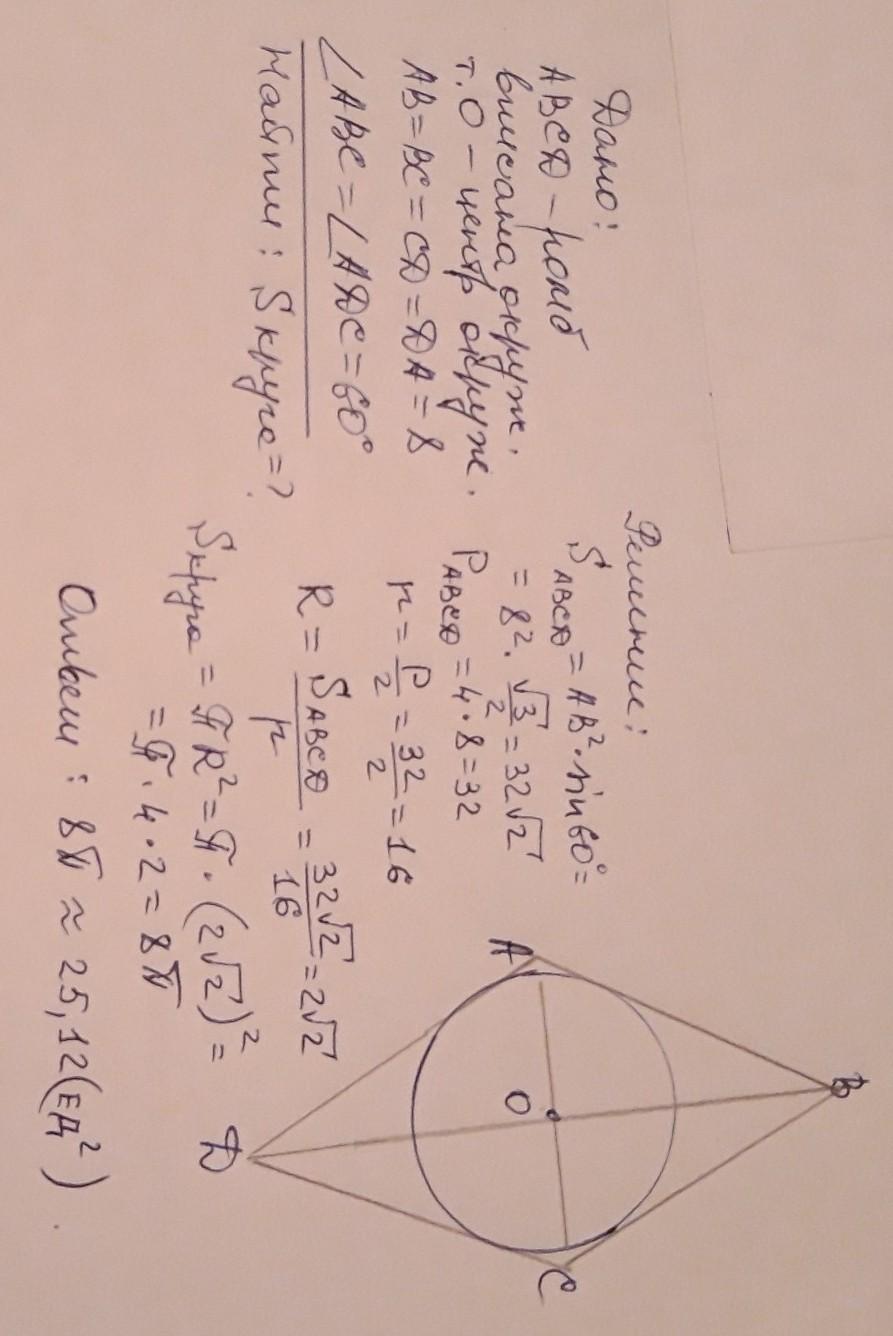 Дано:
ABCD – ромб
вписана окруж.
т. О – центр окруж.
AB = BC = CD = DA = 8
∠ABC = ∠ADC = 60°
Найти: Sкруга = ?
Решение:
S ABCD = AB² · sin 60° =
= 8² · √3/2 = 32√2
P ABCD = 4 · 8 = 32
p = P/2 = 32/2 = 16
R = S ABCD/p = 32√2/16 = 2√2
Sкруга = πR² = π · (2√2)² =
= π · 4 · 2 = 8π
Ответ: 8π ≈ 25,12 (ЕД²).
B
A
O
C
D